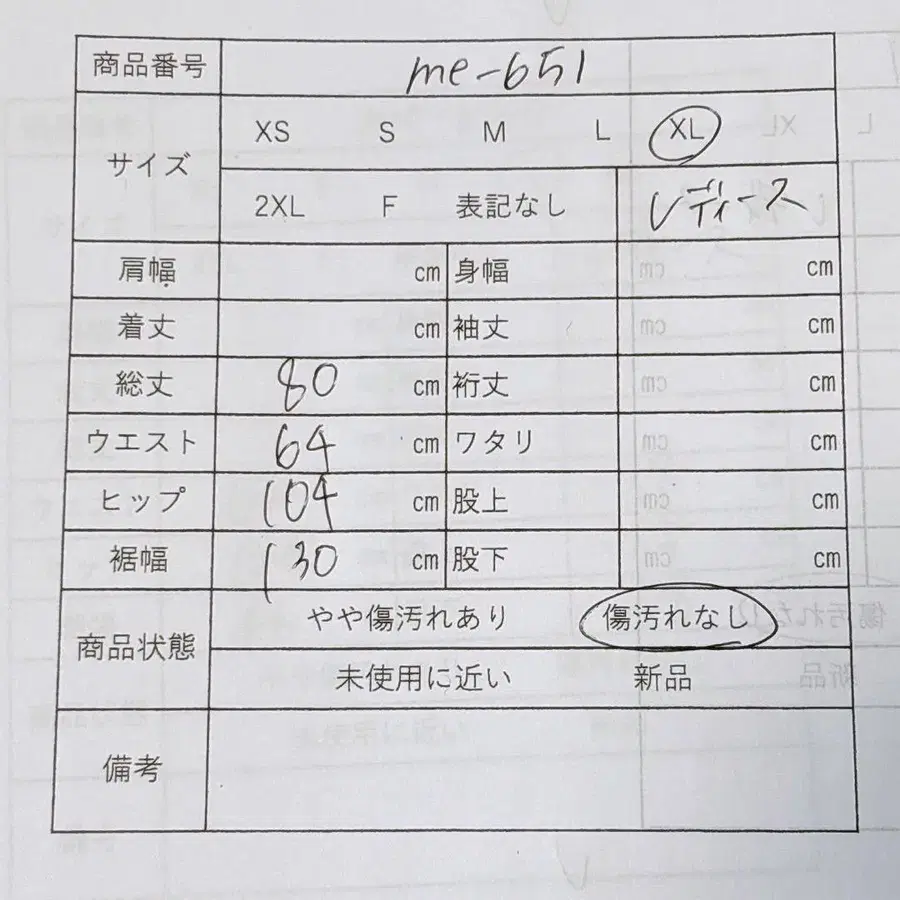 商品番号 me-651
サイズ XS S M L XL
2XL F 表記なし レディース
肩幅 cm 身幅 cm
着丈 cm 袖丈 cm
総丈 80 cm 裄丈 cm
ウエスト 64 cm ワタリ cm
ヒップ 104 cm 股上 cm
裾幅 130 cm 股下 cm
商品状態 やや傷汚れあり 傷汚れなし
未使用に近い 新品
備考